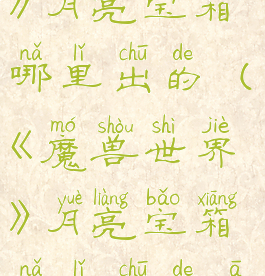 》月亮宝箱
nǎ lǐ chū de
哪里出的(
mó shòu shì jiè
《魔兽世界
yuè liàng bǎo xiāng
》月亮宝箱
nǎ lǐ chū de ā